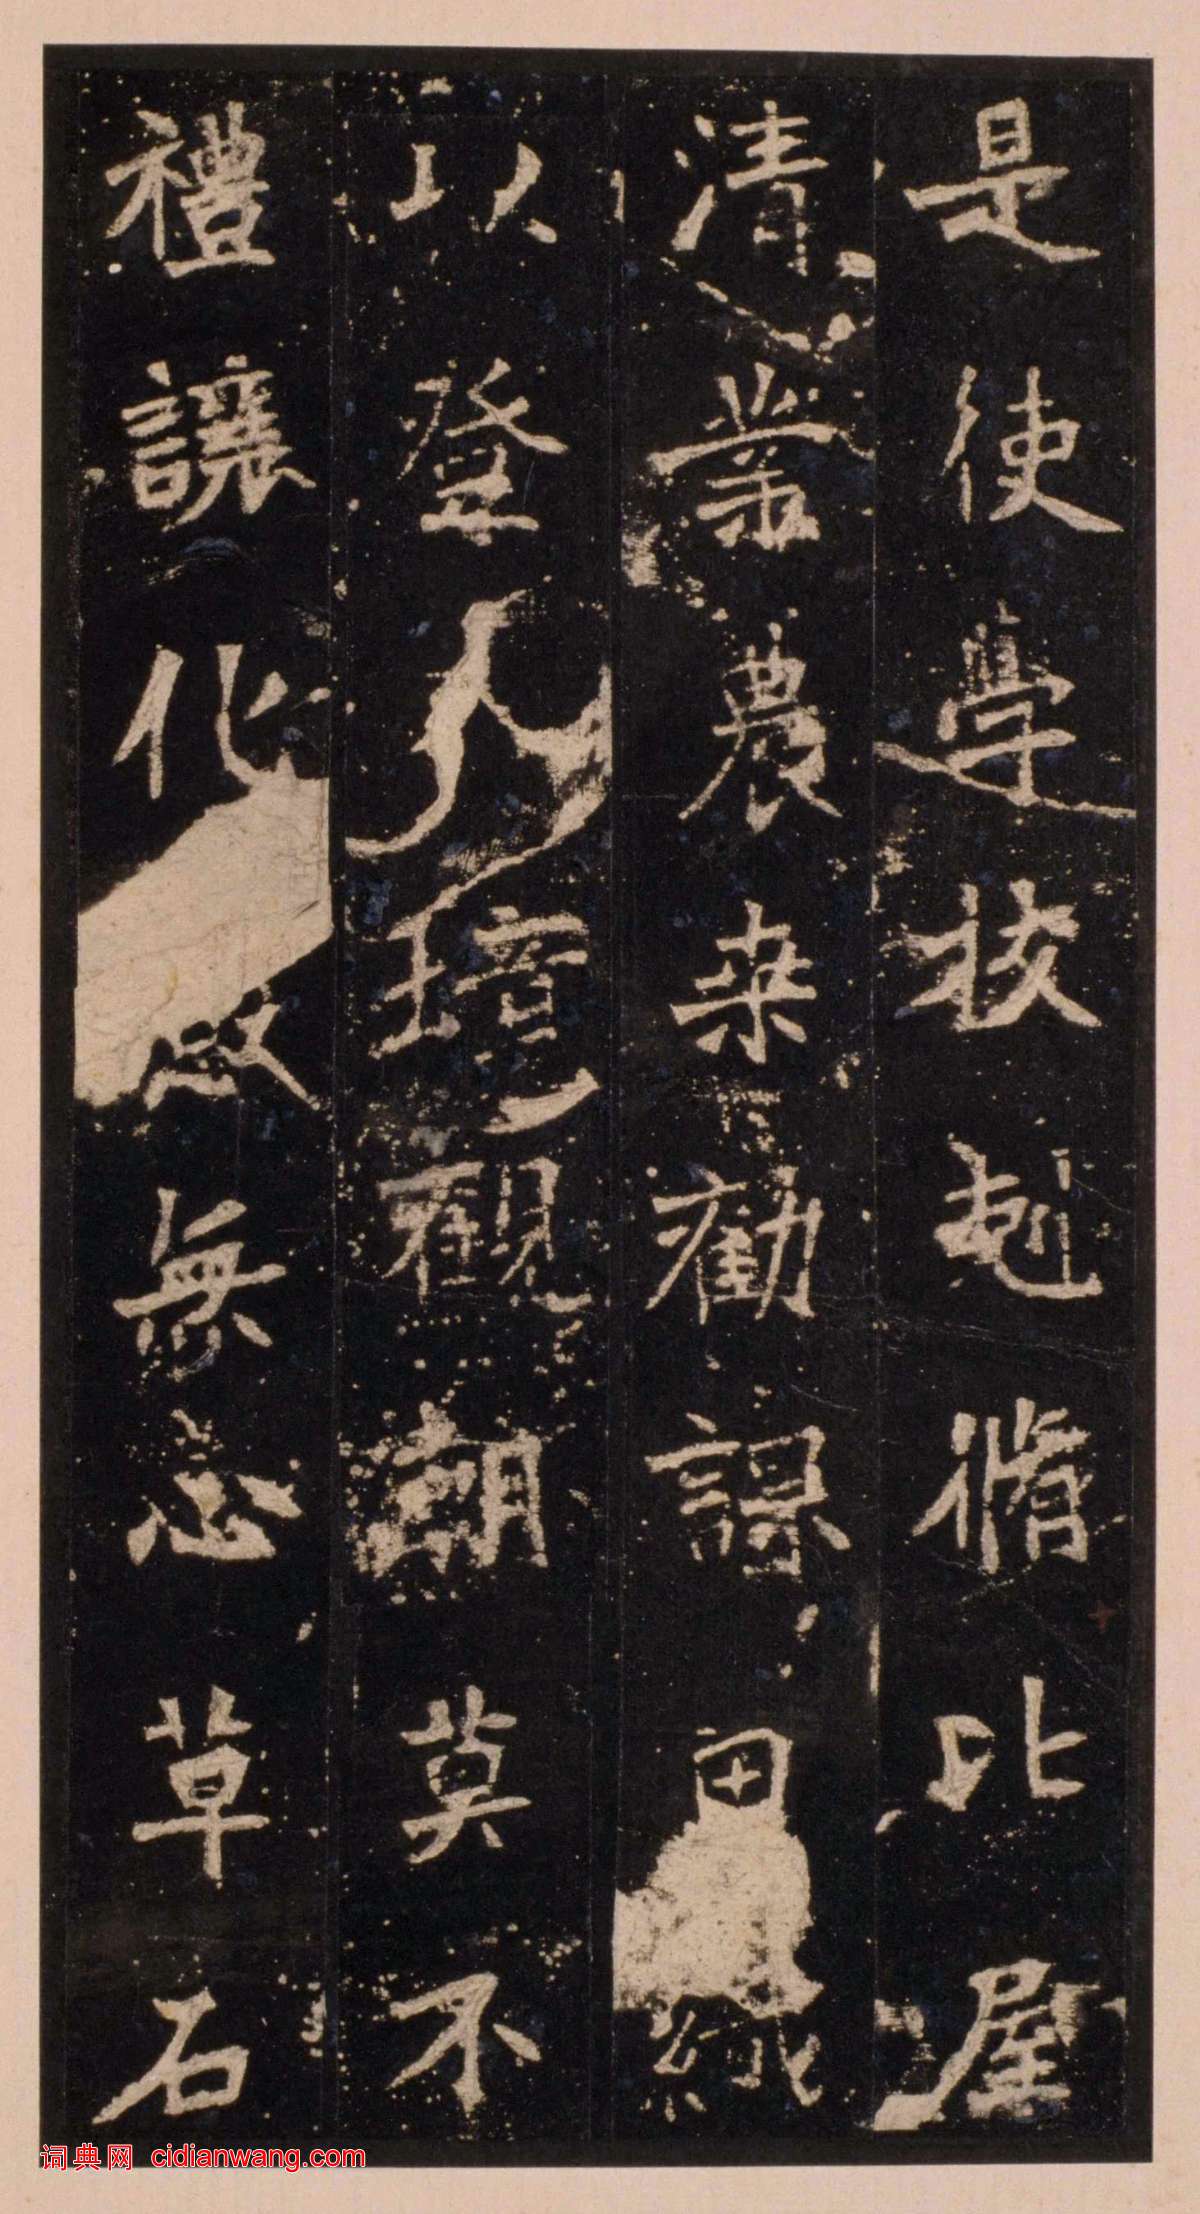 是使學挍尅脩比屋
清業農桒勸課田織
以登入境觀朝莫不
禮讓化感無心草石
词典网 cidianwang.com